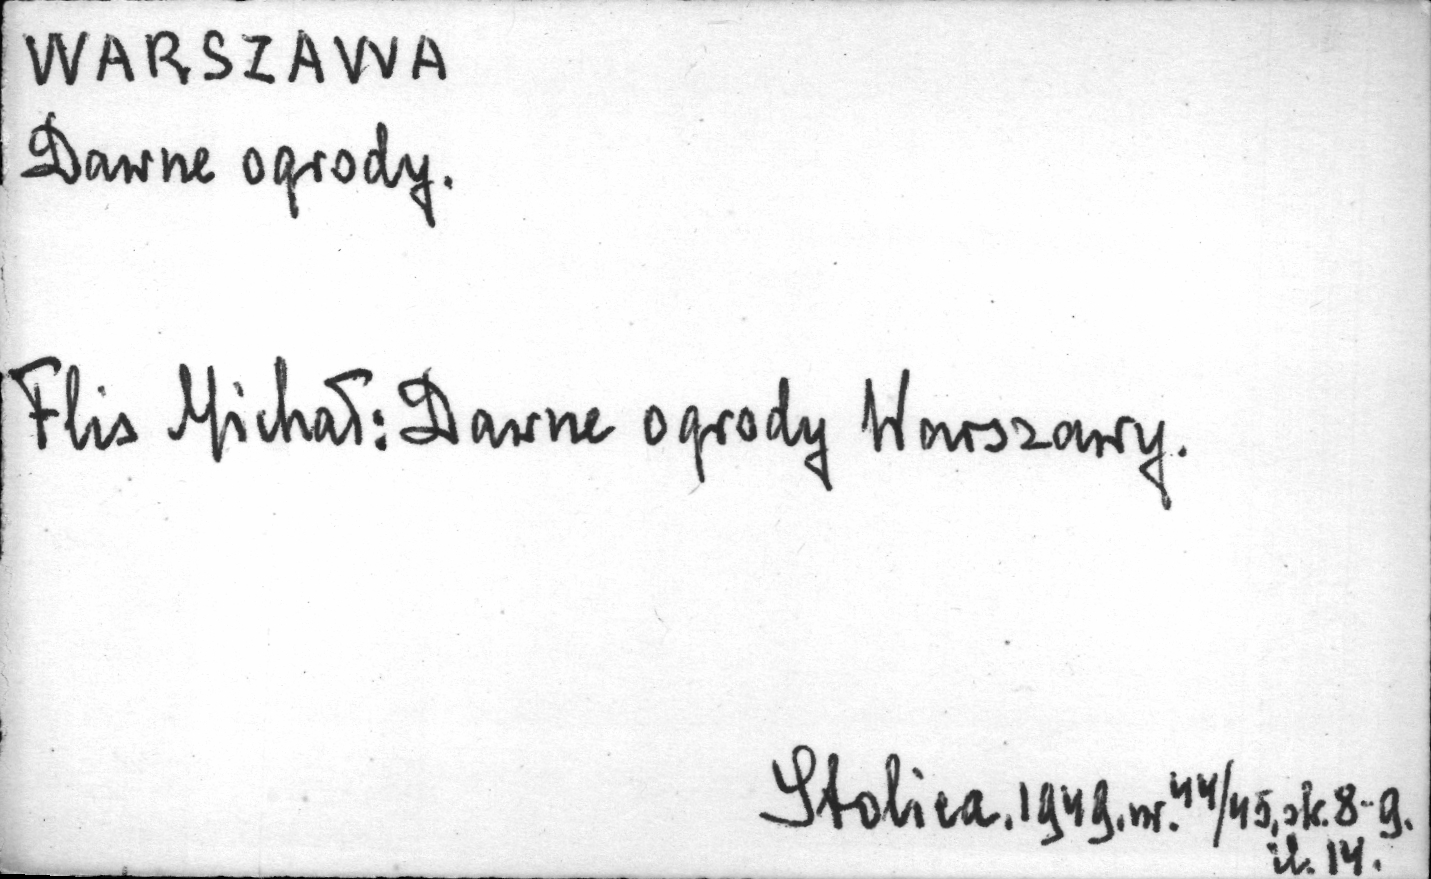 WARSZAWA
Dawne ogrody.
Flis Michał: Dawne ogrody Warszawy.
Stolica. 1949. nr. 44/45, sk. 8-9.
il. 14.